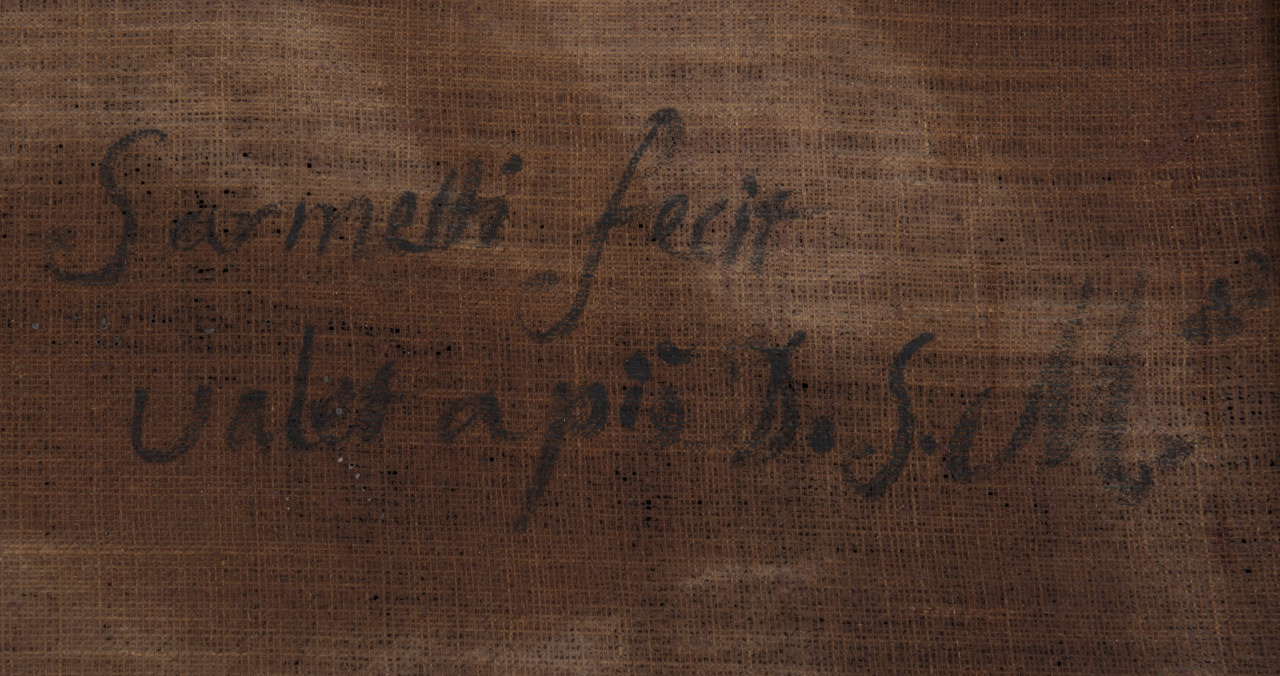 Sarmetti fecit
valet a piō D. S. M.